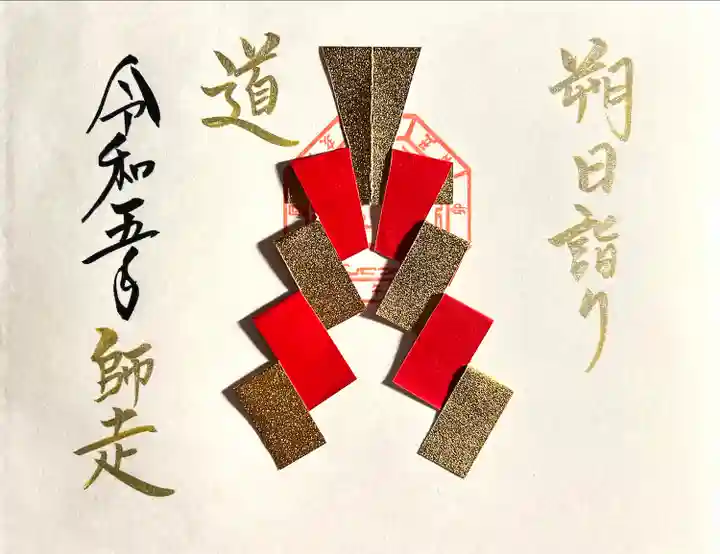 朔日詣り
道
令和五年
師走